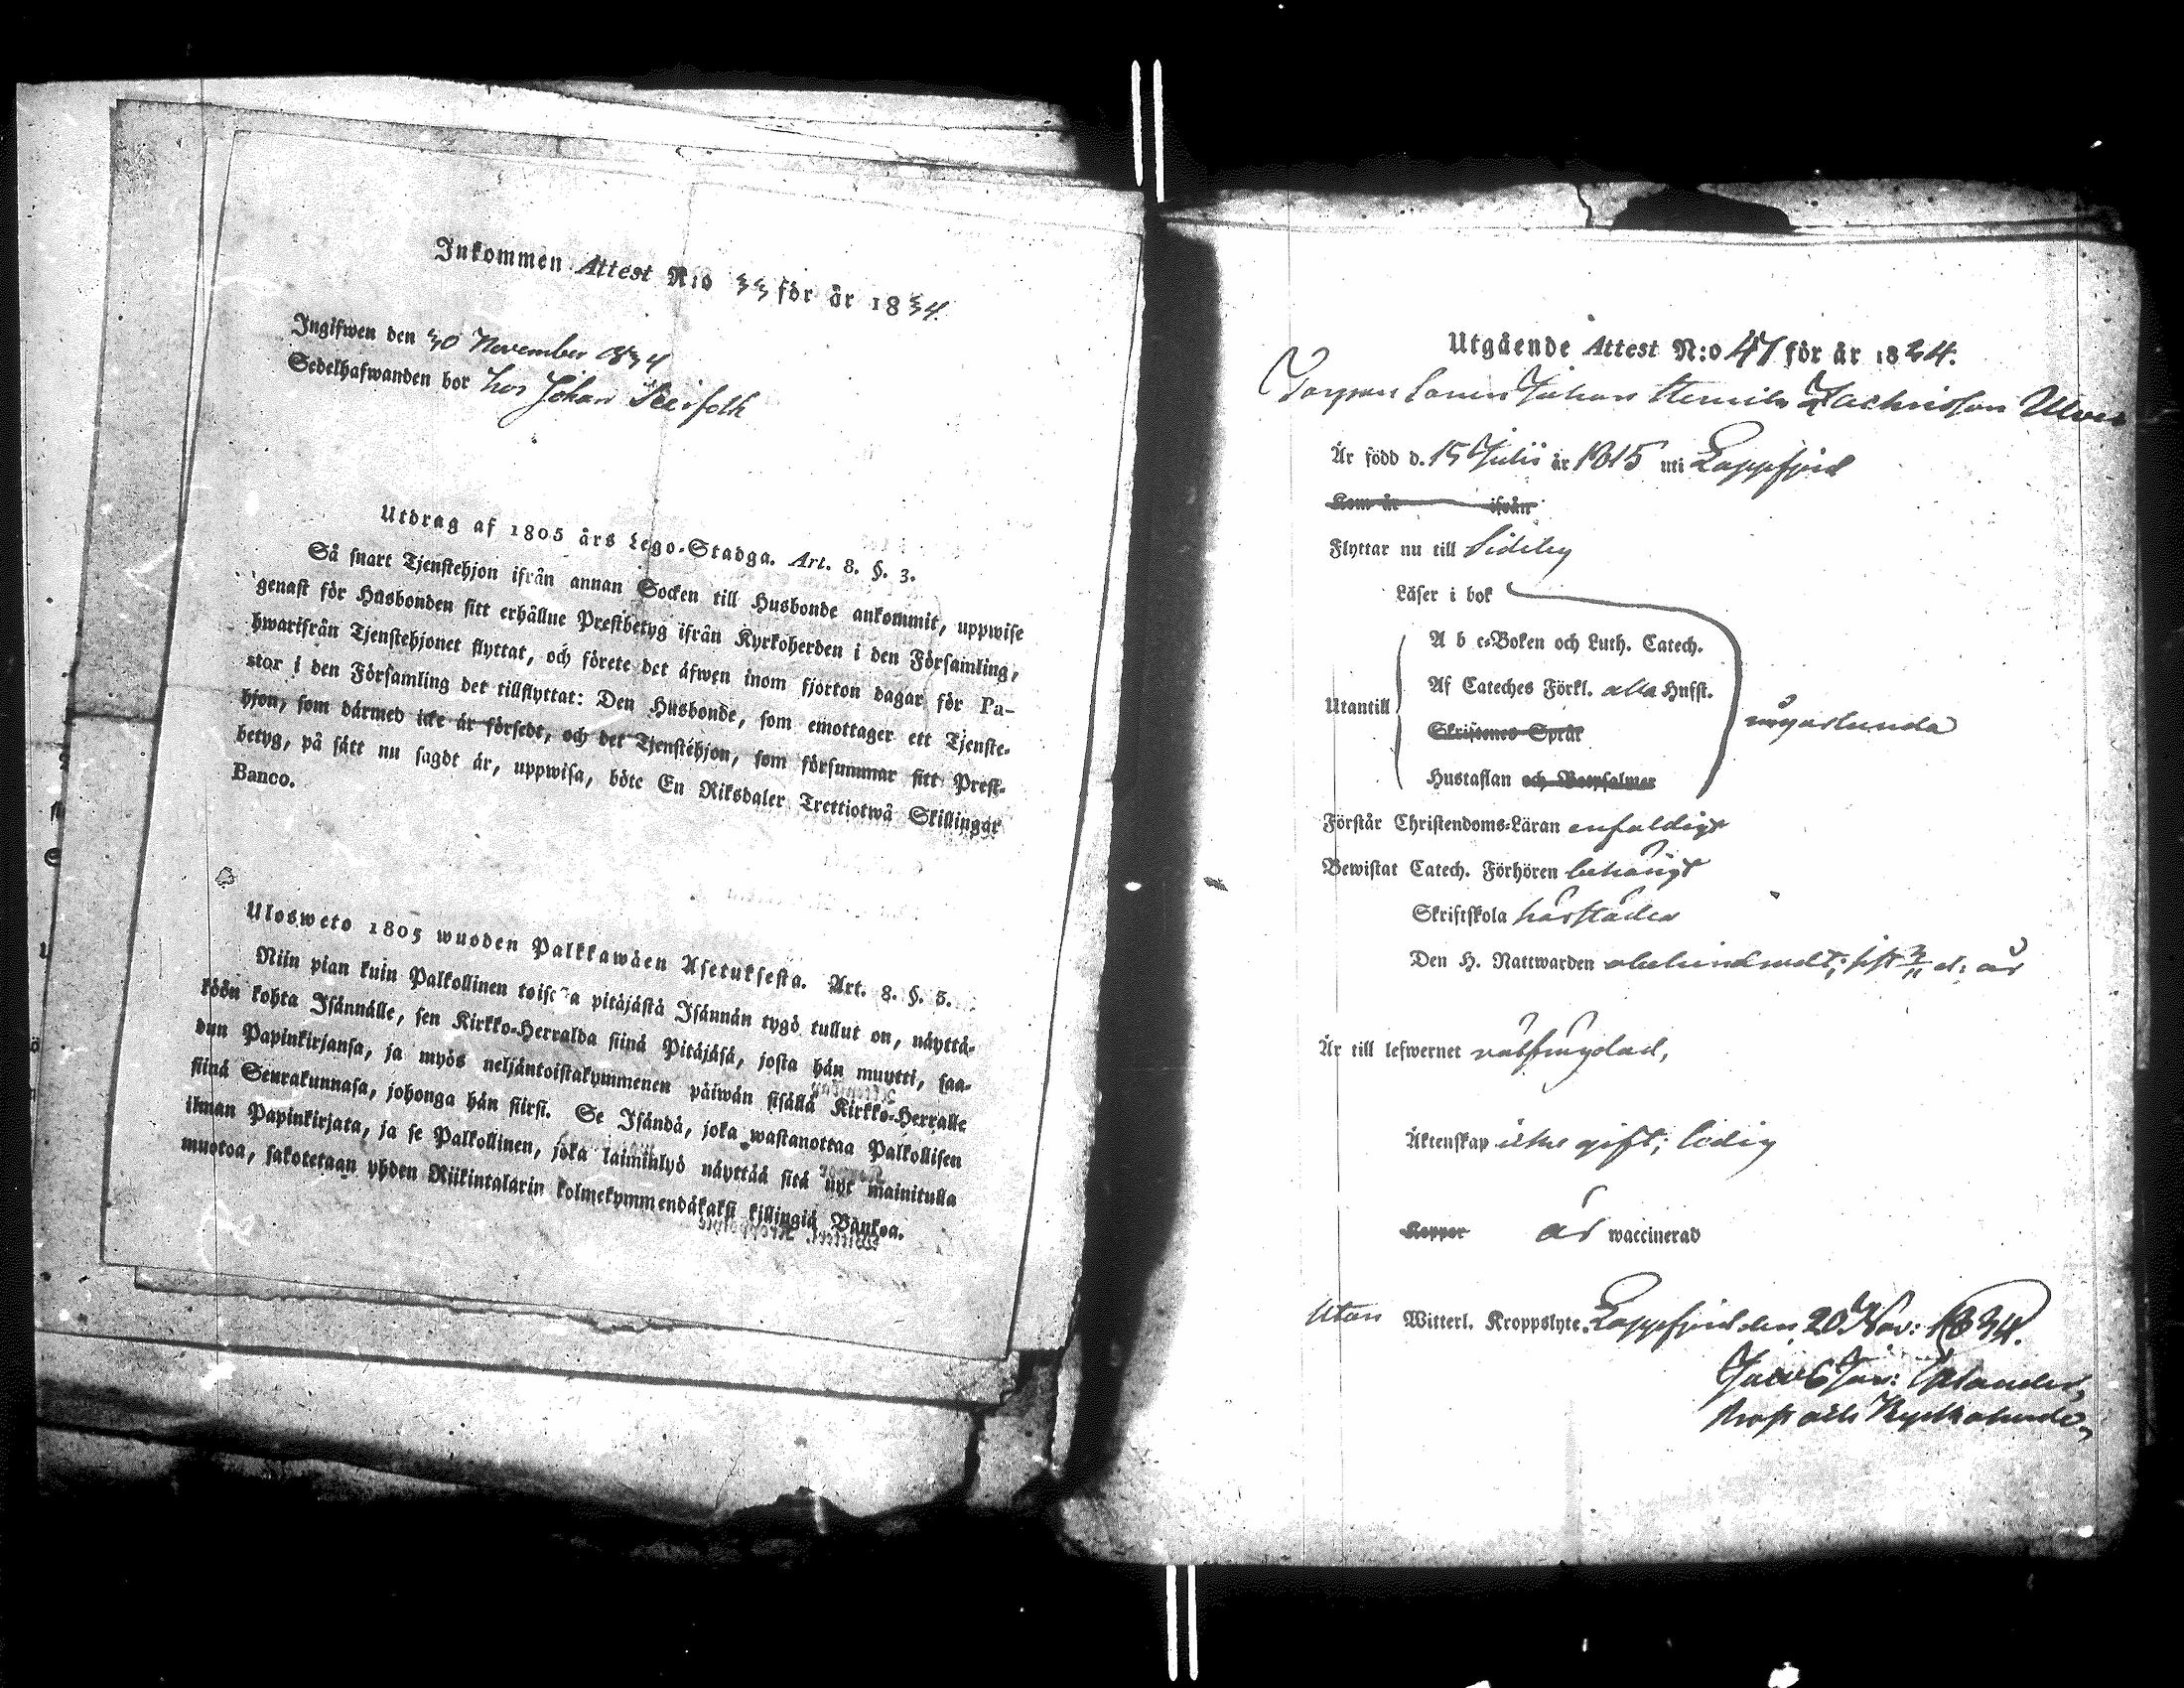 Inkommen Attest N:o 33 för år 1834.
Ingifwen den 30 November 1834
Sedelhafwanden bor hos Johan
Utdrag af 1805 års Lego-Stadga. Art. 8. §. 3.
Så snart Tjenstehjon ifrån annan Socken till Husbonde ankommit, uppwise
genast för Husbonden sitt erhållne Prestbetyg ifrån Kyrkoherden i den Församling,
hwarifrån Tjenstehjonet flyttat, och förete det äfwen inom fjorton dagar för Pa-
stor i den Församling det tillflyttat: Den Husbonde, som emottager ett Tjenste-
hjon, som därmed icke är försedt, och det Tjenstehjon, som försummar sitt Prest-
betyg, på sätt nu sagdt är, uppwisa, böte En Riksdaler Trettiotwå Skillingar
Banco.
Ulosweto 1805 wuoden Palkkawäen Asetuksesta. Art. 8. §. 3.
Niin pian kuin Palkollinen toisesta pitäjästä Isännän tygö tullut on, näyttä-
köön kohta Isännälle, sen Kirkko-Herralda siinä Pitäjäsä, josta hän muutti, saa-
dun Papinkirjansa, ja myös neljäntoistakymmenen päiwän sisällä Kirkko-Herralle
siinä Seurakunnasa, johonga hän siirsi. Se Isändä, joka wastanottaa Palkollisen
ilman Papinkirjata, ja se Palkollinen, joka laiminlyö näyttää sitä nyt mainitulla
muotoa, sakotetaan yhden Riikintalarin kolmekymmendäkaksi killingiä Bankoa.
Utgående Attest N:o 47 för år 1834.
Johan Henrik Zachrisson
Är född d. 15 Julii år 1815 uti Lappfjerd
Kom år ifrån
Flyttar nu till Sideby
Läser i bok
A b c-Boken och Luth. Catech.
Af Cateches Förkl. alla Hufst.
Utantill
någorlunda
Skriftenes Språk
Hustaflan och Botpsalmer
Förstår Christendoms-Läran enfaldigt
Bewistat Catech. Förhören behörigt
Skriftskola härstädes
Den H. Nattwarden obehindradt; sist 3/11 d: år
Är till lefwernet välfrägdad,
Äktenskap icke gift; ledig
Koppor är waccinerad
utan Witterl. Kroppslyte. Lappfjerd den 20 Nov: 1834.
Jacob Jac:
Prost och Kyrkoherde